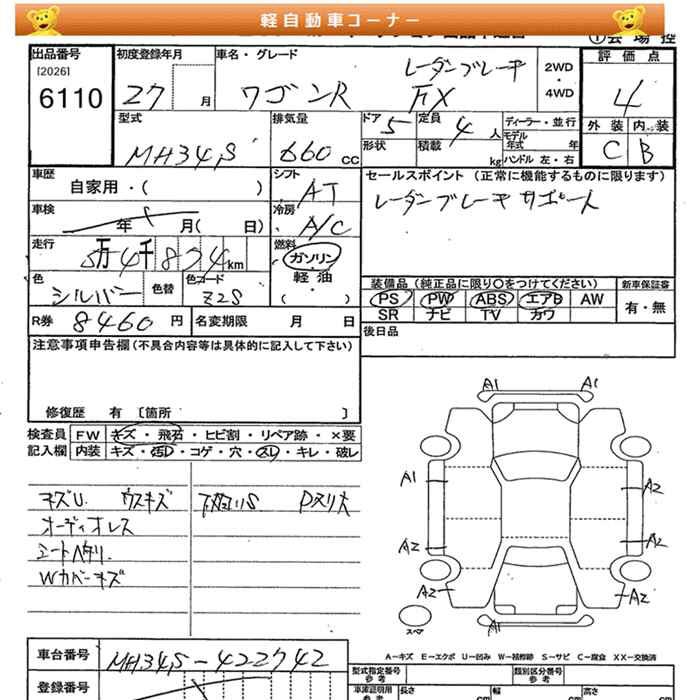 軽自動車コーナー
① 会場控
出品番号 初度登録年月 車名・グレード レーダーブレーキ 2WD・4WD 評価点
[2026]
6110 27 月 ワゴンR FX 4
型式 排気量 ドア 5 定員 4 人 ディーラー・並行 外装 内装
MH34S 660 CC 形状 積載 kg モデル年式 年 ハンドル 左・右 C B
車歴 自家用・( ) シフト AT セールスポイント (正常に機能するものに限ります)
車検 年 月( 日) 冷房 A/C レーダーブレーキサポート
走行 5万4千874km 燃料 ガソリン・軽油( )
色 シルバー 色替 色コード Z2S 装備品 (純正品に限り○をつけてください) 新車保証書
PS PW ABS エアB AW 有・無
SR ナビ TV カワ
R券 8460 円 名変期限 月 日 後日品
注意事項申告欄 (不具合内容等は具体的に記入して下さい)
修復歴 有 [箇所 ]
検査員 FW キズ・飛石・ヒビ割・リペア跡・×要
記入欄 内装 キズ・汚レ・コゲ・穴・スレ・キレ・破レ
キズU. ウスキズ
オーディオレス
Wカバーキズ
A1 A1
A1 A2
A2 A2
A2 A2
スペア A1
A−キズ E−エクボ U−凹み W−補修跡 S−サビ C−腐食 XX−交換済
車台番号 MH34S-422742
登録番号
型式指定番号 参考 類別区分番号 参考
車庫証明用 参考 長さ cm 幅 cm 高さ cm